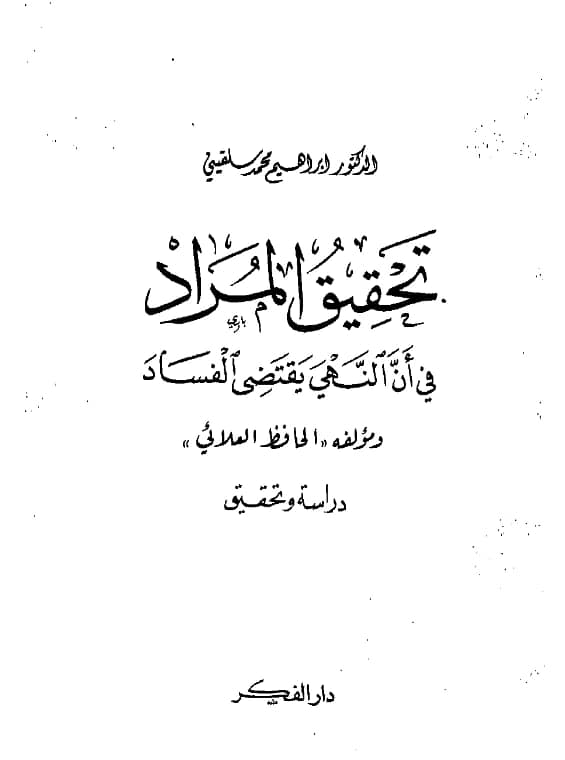 الدكتور ابراهيم محمد سلقيني
تحقيق المراد
في أَنَّ النَّهْيَ يَقتَضِي الْفَسَادَ
ومؤلفه «الحافظ العلائي»
دراسة وتحقيق
دار الفكر